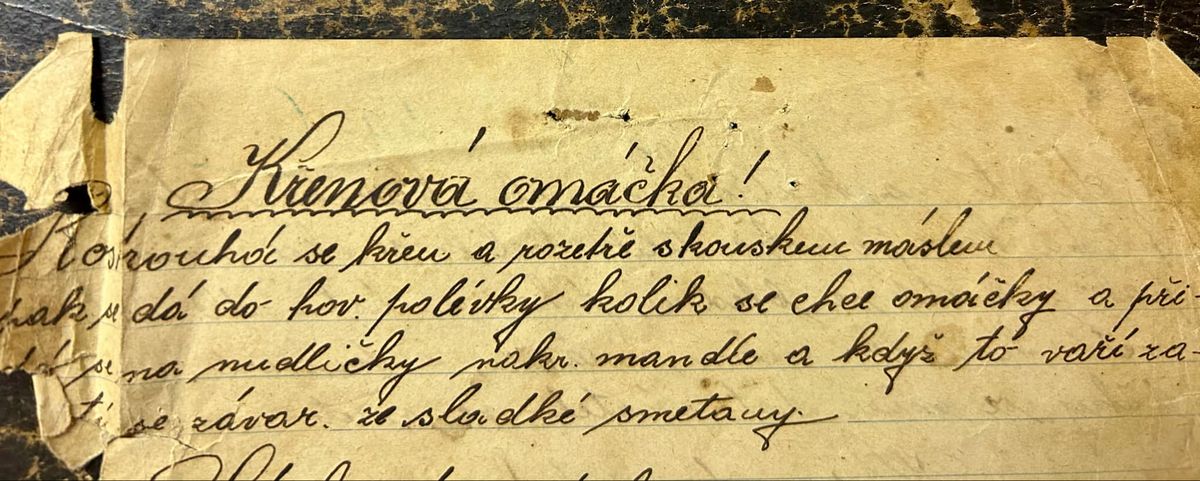 Křenová omáčka!
Rostrouhá se křen a rozetře s kouskem máslem
pak se dá do hov. polévky kolik se chce omáčky a při
dá se na nudličky nakr. mandle a když to vaří za-
tí se závar. ze sladké smetany.